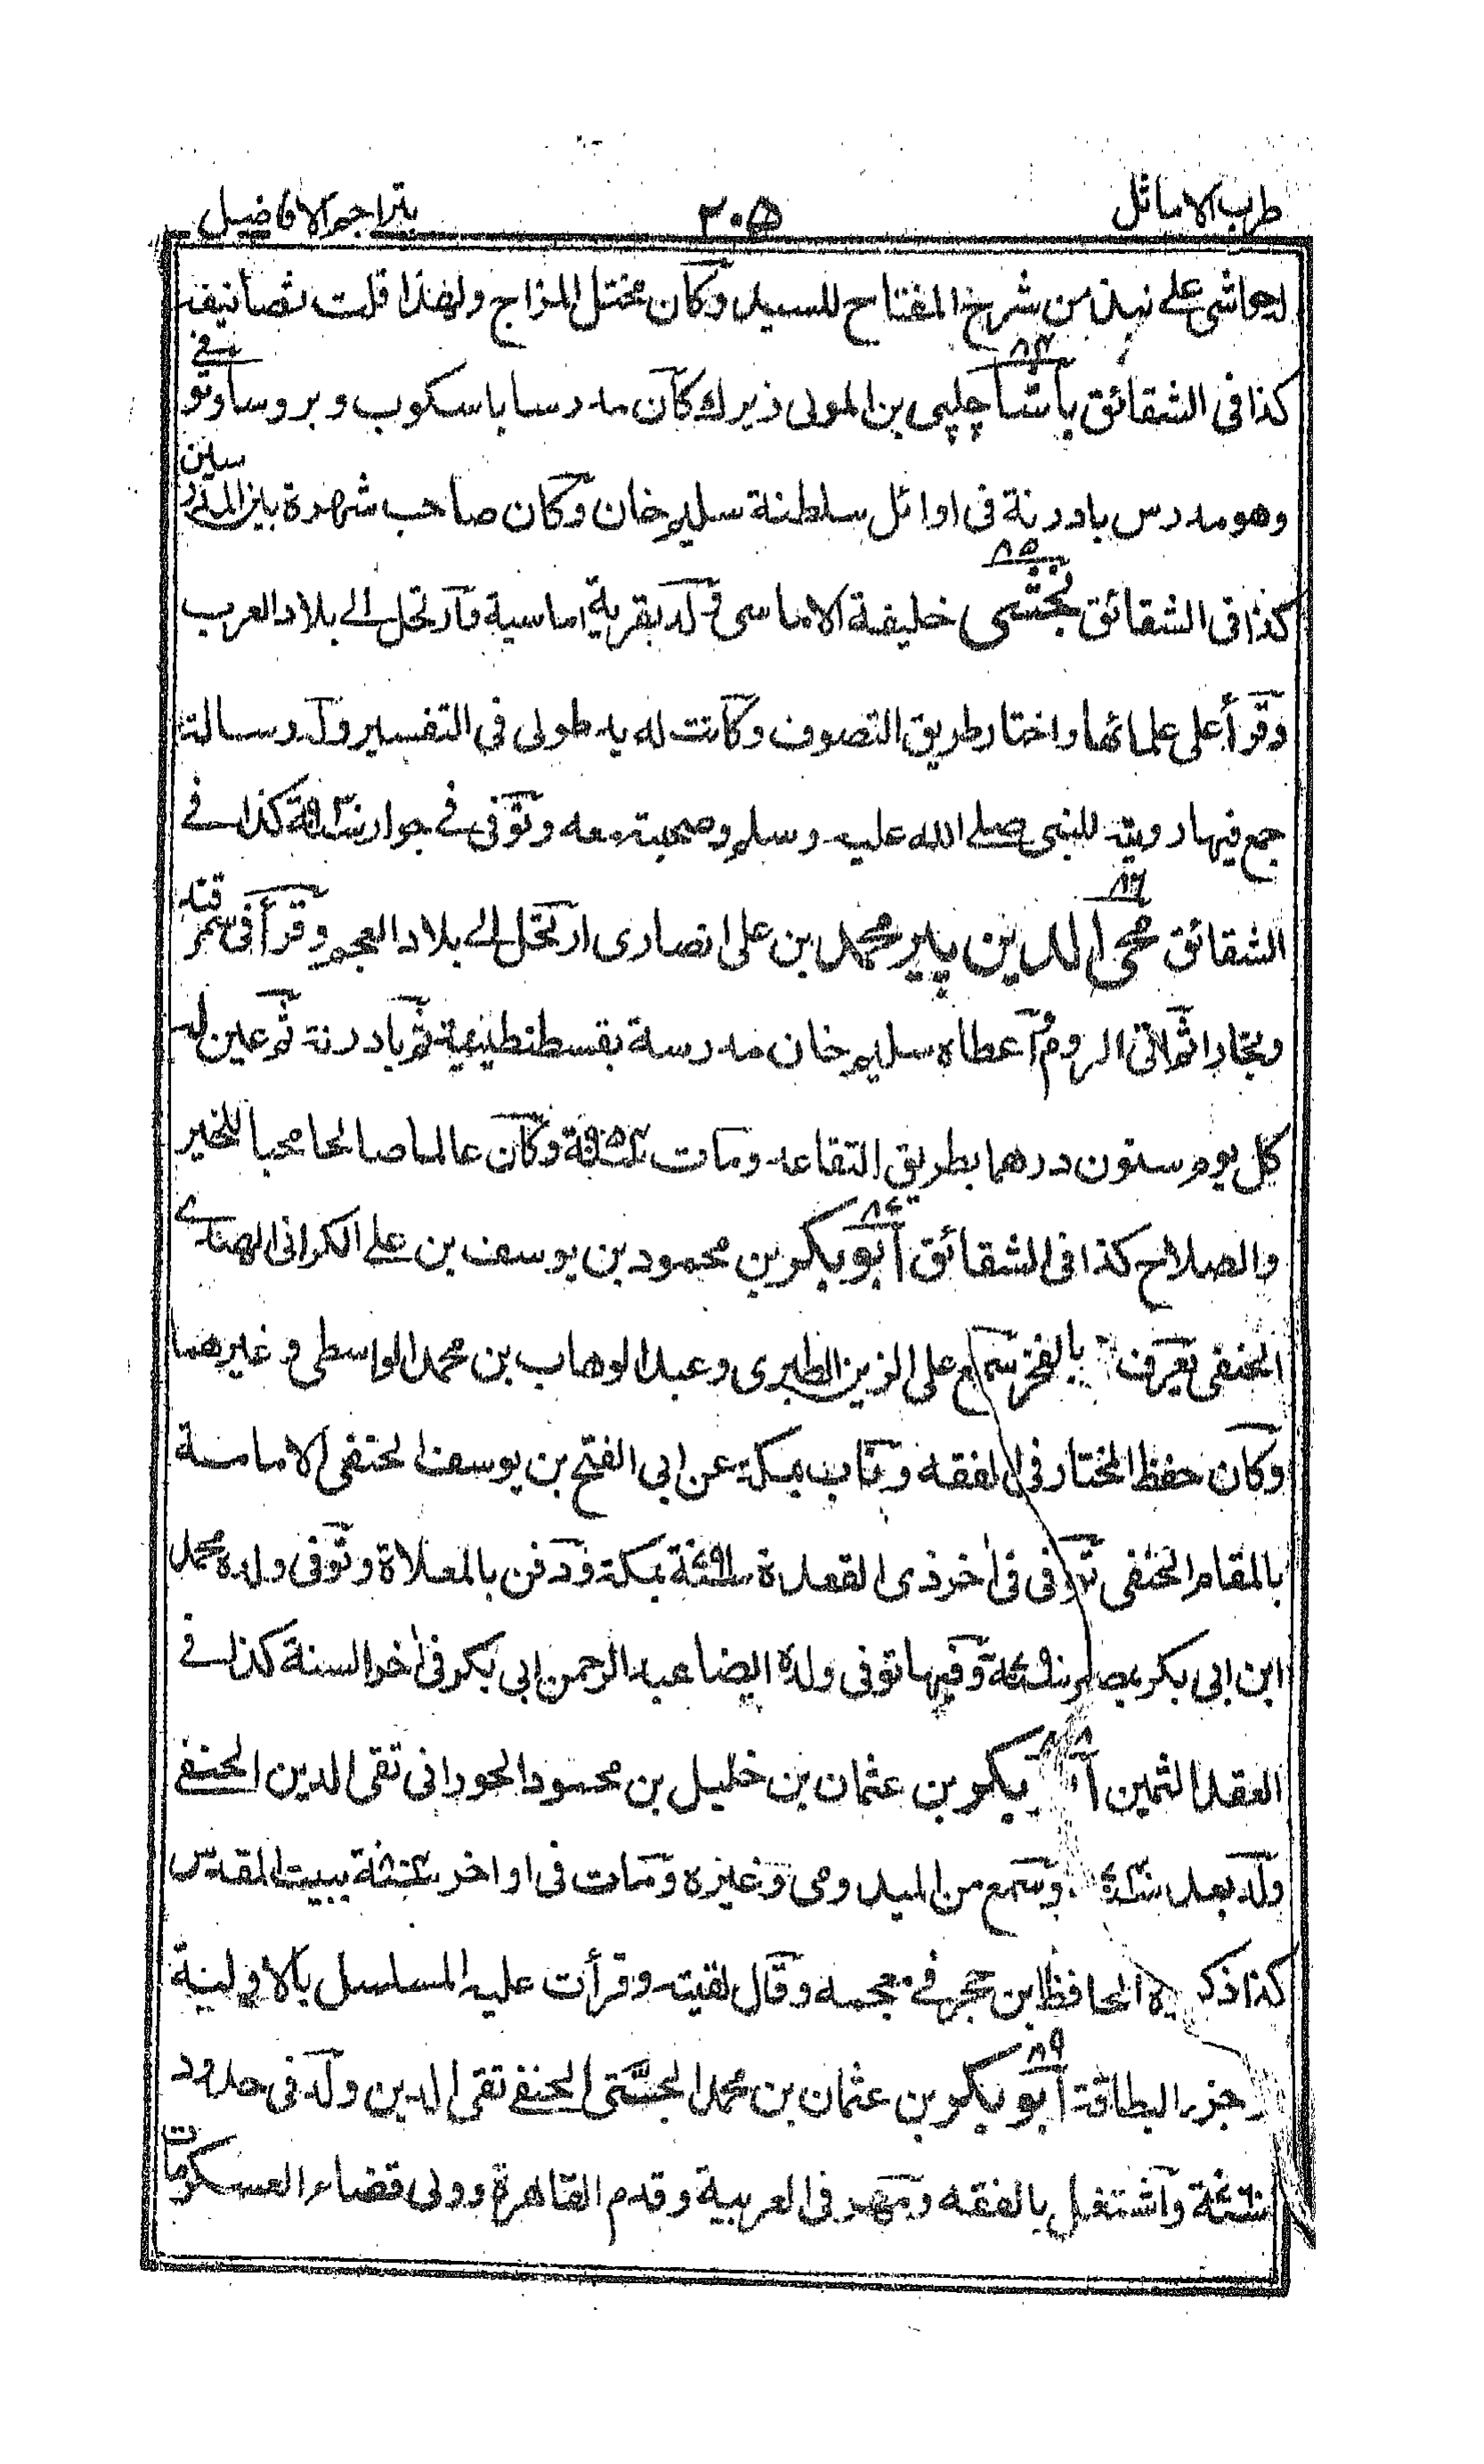 طرب الاماثل ٢٠٥ بتراجم الافاضل
له حواشی علی نبذ من شرح المفتاح للسید وکان مختل المزاج ولهذا قلت تصانیفه
کذا فی الشقائق ٨٤ باشا چلپی بن المولی زیرک کان مدرسا باسکوب وبروسا وتوفی
وهو مدرس بادرنة فی اوائل سلطنة سلیم خان وکان صاحب شهرة بین المدرسین
کذا فی الشقائق ٨٥ بخشی خلیفة الاماسی ولد بقریة اماسیة وارتحل الی بلاد العرب
وقرأ علی علمائها واختار طریق التصوف وکانت له ید طولی فی التفسیر وله رسالة
جمع فیها رویته للنبی صلی الله علیه وسلم وصحبته معه وتوفی فی جوار سنة ٩٣٠ کذا فی
الشقائق ٨٦ محی الدین پیر محمد بن علی انصاری ارتحل الی بلاد العجم وقرأ فی سمرقند
وبخارا ثم لاتی الروم اعطاه سلیم خان مدرسة بقسطنطینیة ثم بادرنة ثم عین له
کل یوم ستون درهما بطریق التقاعد ومات سنة ٩٥٤ وکان عالما صالحا محبا للخیر
والصلاح کذا فی الشقائق ٨٧ ابو بکر بن محمود بن یوسف بن علی الکرانی الهندی
الحنفی یعرف بالفخر سمع علی الزین الطبری وعبد الوهاب بن محمد الواسطی وغیرهما
وکان حفظ المختار فی الفقه وناب بمکة عن ابی الفتح بن یوسف الحنفی الامامة
بالمقام الحنفی توفی فی اٰخر ذی القعدة سنة بمکة ودفن بالمعلاة وتوفی ولده محمد
ابن ابی بکر بمصر سنة وفیها توفی ولده ایضا عبد الرحمن ابی بکر فی اٰخر السنة کذا فی
العقد الثمین ٨٨ بکر بن عثمان بن خلیل بن محمود الحورانی تقی الدین الحنفی
ولد بعد سنة وسمع من المیدومی وغیره ومات فی اواخر سنة ببیت المقدس
کذا ذکره الحافظ ابن حجر فی معجمه وقال لقیته وقرأت علیه المسلسل بالاولیة
جزء البطاقة ٨٩ ابو بکر بن عثمان بن محمد الجیتی الحنفی تقی الدین ولد فی حدود
سنة واشتغل بالفقه ومهر فی العربیة وقدم القاهرة وولی قضاء العسکر ومات